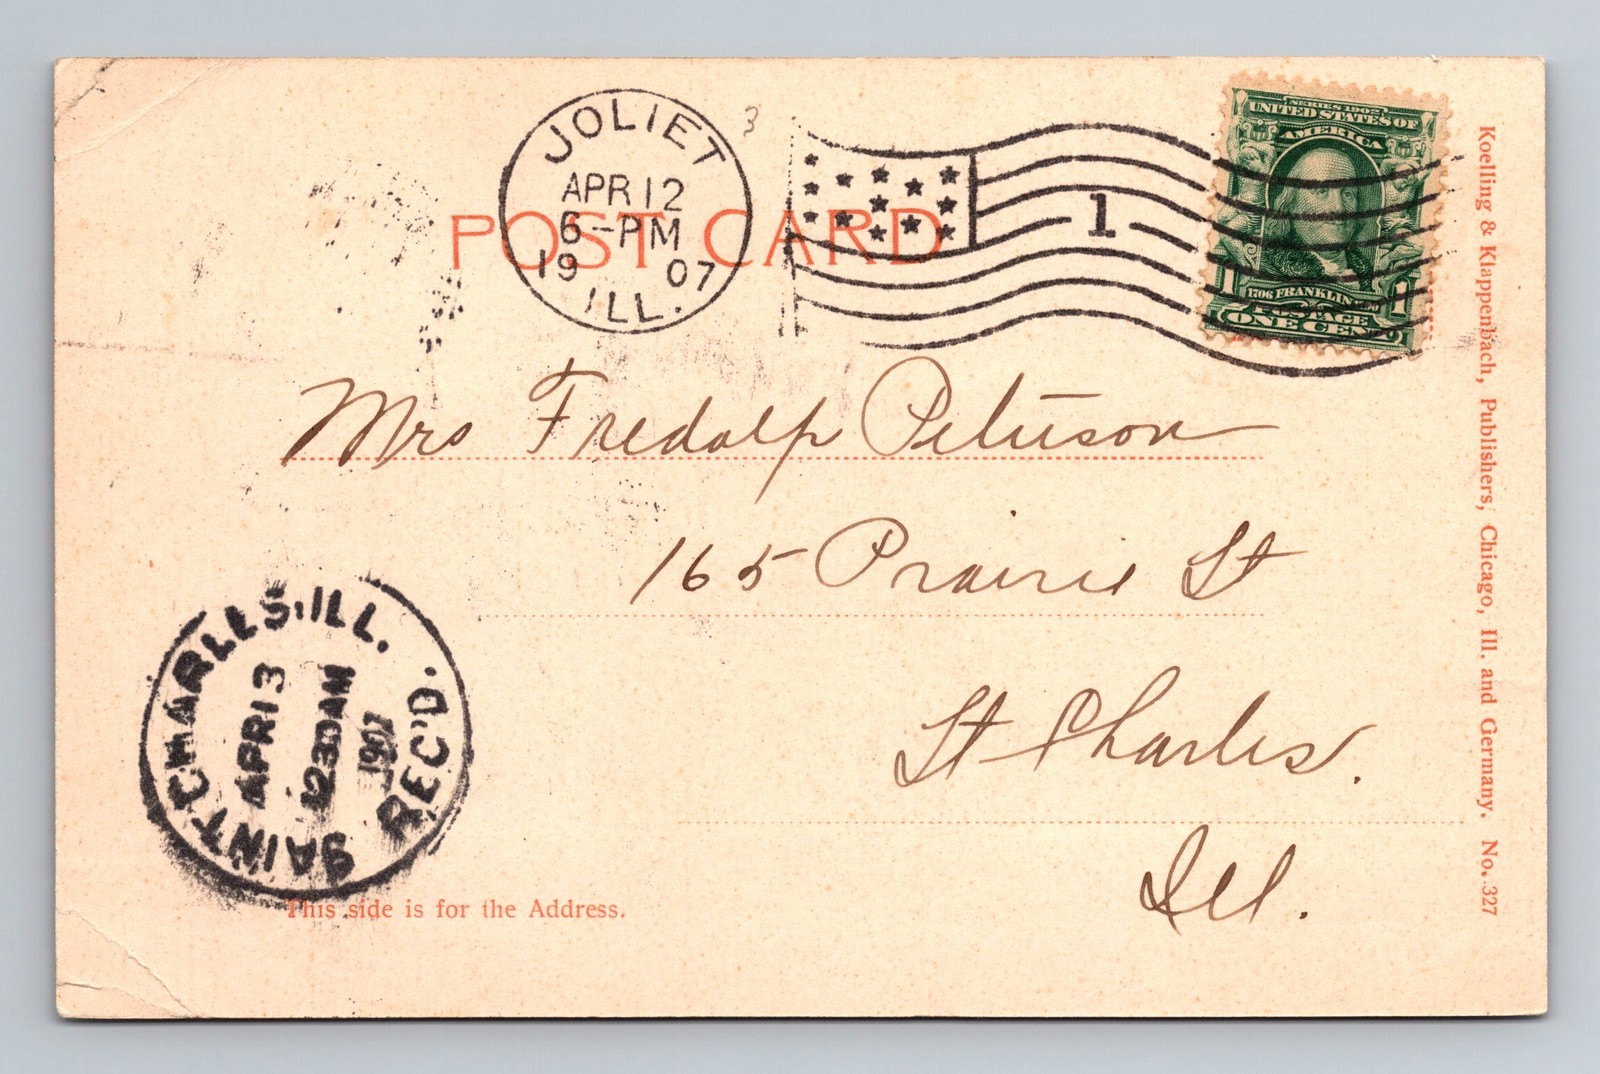 POST CARD
JOLIET
APR 12
6-PM
19 07
ILL.
3
1
SERIES 1902
UNITED STATES OF
AMERICA
1706 FRANKLIN
POSTAGE
1 1
ONE CENT
Mrs Fredolph Peterson
165 Prairie St
St Charles.
Ill.
SAINT CHARLES. ILL.
APR 13
1230AM
1907
REC'D.
This side is for the Address.
Koelling & Klappenbach, Publishers, Chicago, Ill. and Germany. No. 327